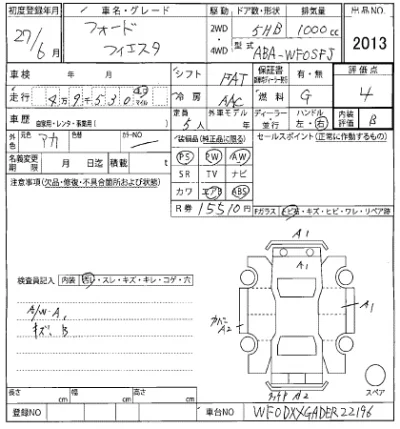 初度登録年月 車名・グレード 駆動 ドア数・形状 排気量 出品NO
27/6月 フォード フィエスタ 2WD ・ 4WD 5HB 1000cc
型式 ABA-WF0SFJ 2013
車検 年 月 シフト FAT 保証書 有・無 評価点
走行 8万9千530 km マイル 冷房 AAC 燃料 G 4
車歴 自家用・レンタ・事業用( ) 定員 5人 外車モデル 年 ディーラー・並行 ハンドル 左・右 内装評価 B
外色 元色 アカ カラーNO 装備品(純正品に限る) セールスポイント(正常に作動するもの)
名義変更期限 月 日迄 積載 t PS PW AW
注意事項(欠品・修復・不具合箇所および状態) SR TV ナビ
カワ エアB ABS
R券 15510円
Fガラス キズ・ヒビ・ワレ・リペア跡
検査員記入 内装 ・スレ・キズ・キレ・コゲ・穴
A/W-A,
キズ、B
A1
A1
カバー A2
A2
スペア
長さ cm 幅 cm 高さ cm
登録NO 車台NO WF0DXXGADER22196